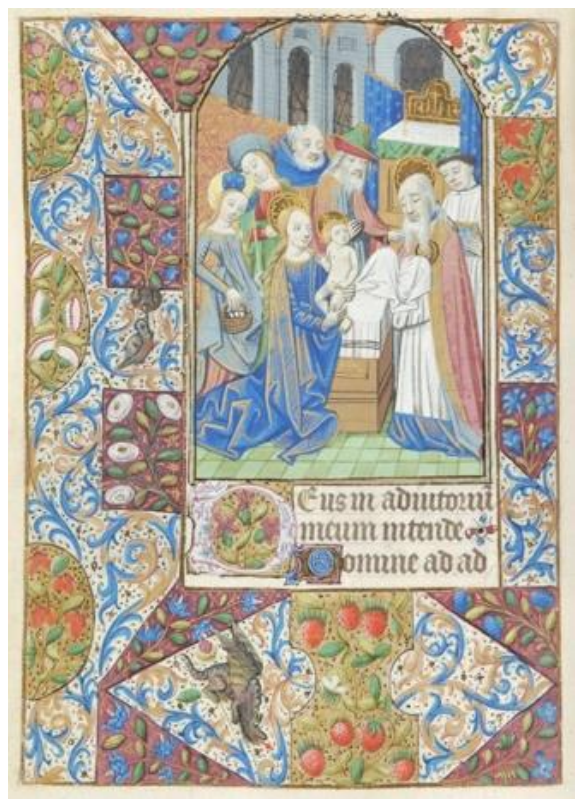 DEus in adiutoriũ
meum intende
Domine ad ad